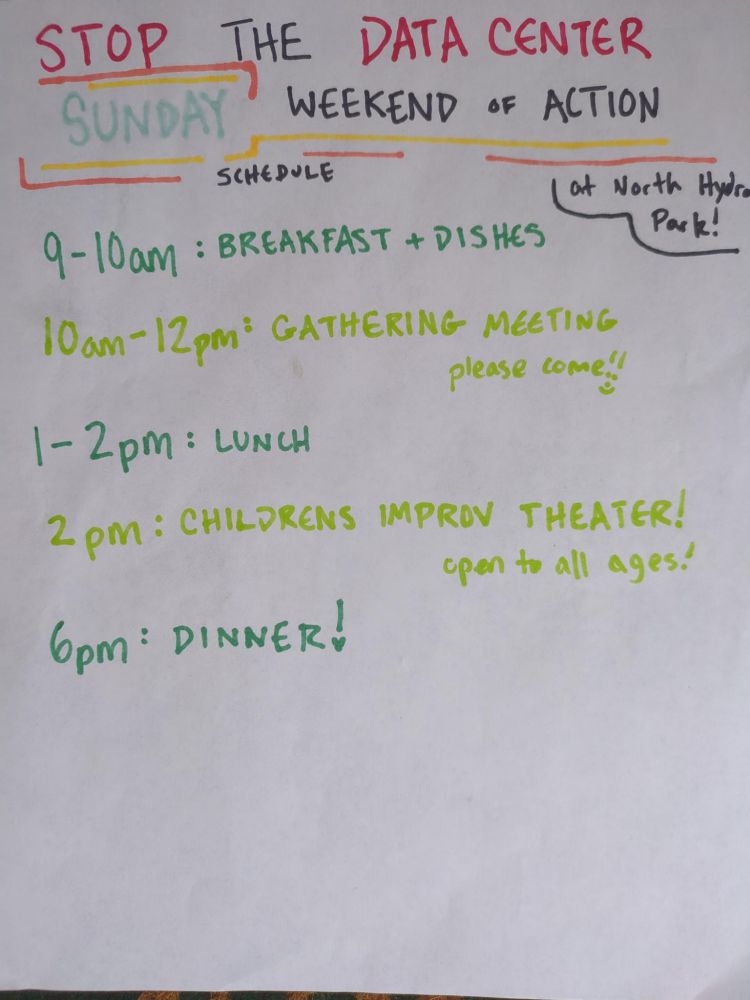 STOP THE DATA CENTER
SUNDAY WEEKEND OF ACTION
SCHEDULE
at North Hydro
Park!
9-10am: BREAKFAST + DISHES
10am-12pm: GATHERING MEETING
please come!!
1-2pm: LUNCH
2pm: CHILDRENS IMPROV THEATER!
open to all ages!
6pm: DINNER!